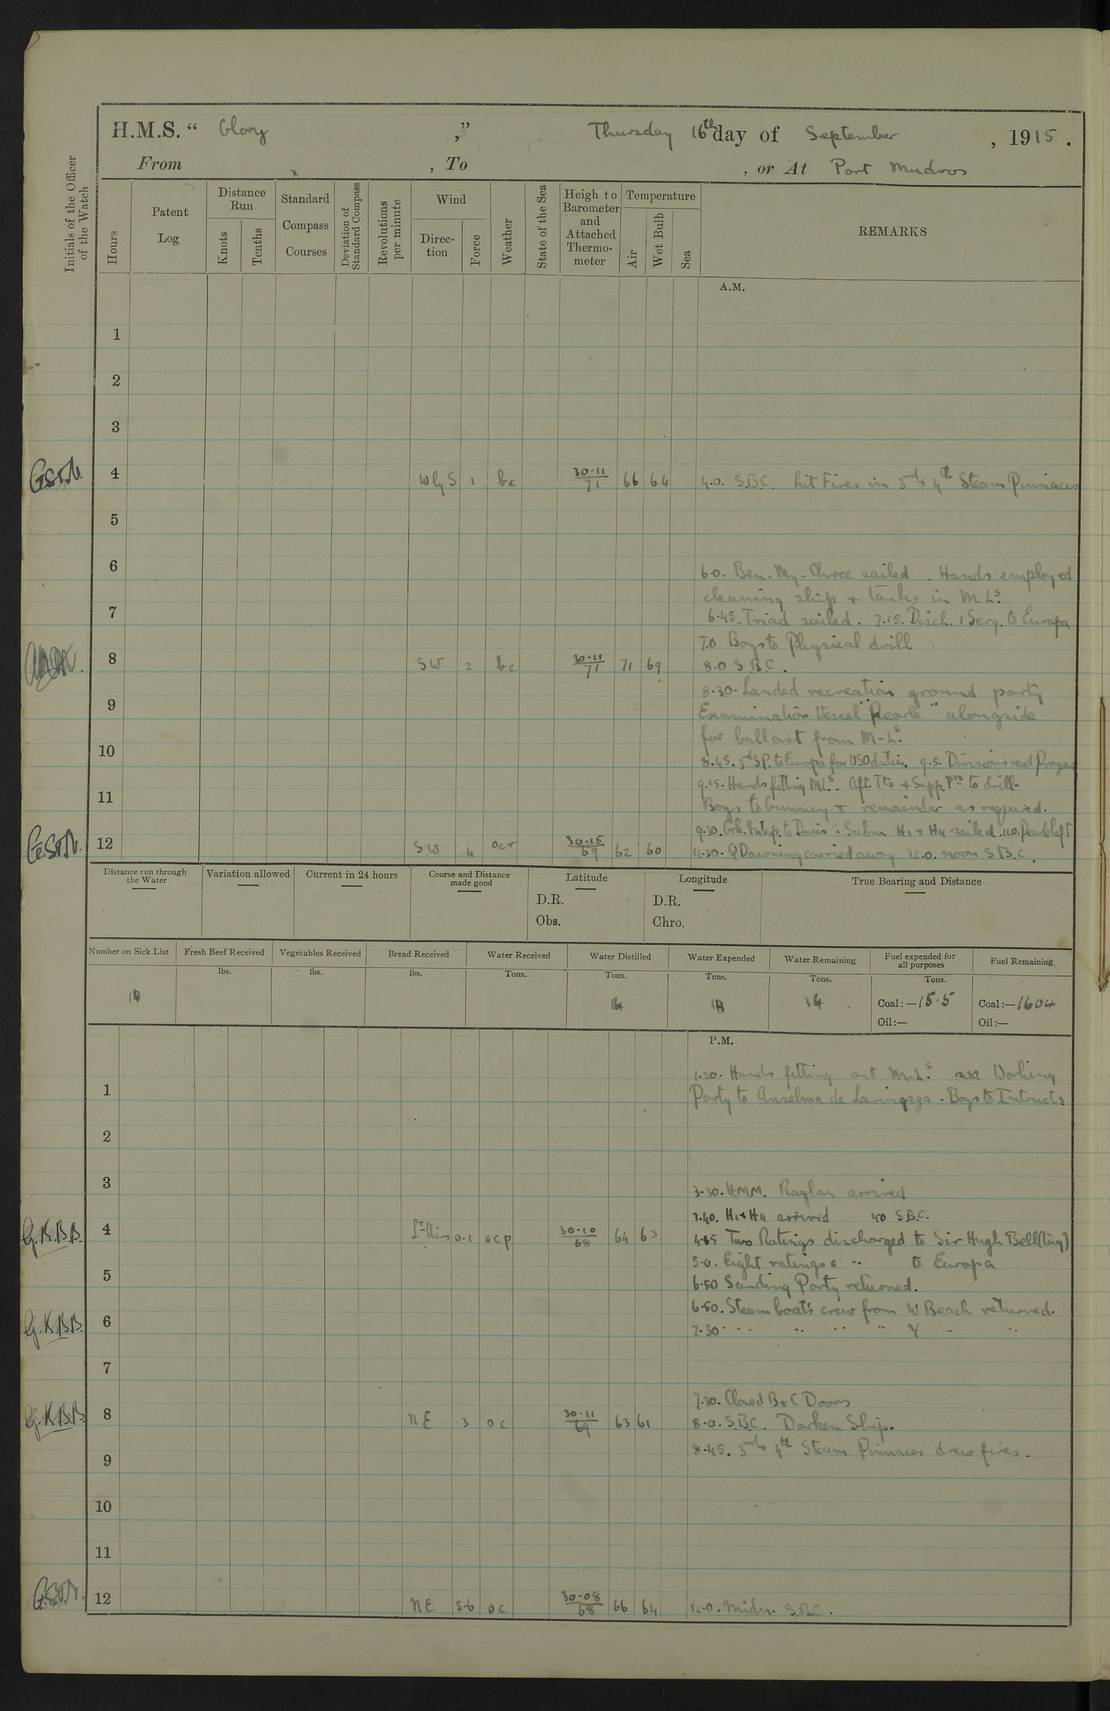 H.M.S. “ Glory ,” Thursday 16th day of September , 1915 .
From , To , or At Port Mudros
Initials of the Officer of the Watch
Hours
Patent Log
Distance Run
Knots
Tenths
Standard Compass Courses
Deviation of Standard Compass
Revolutions per minute
Wind
Direc-tion
Force
Weather
State of the Sea
Heigh t o Barometer and Attached Thermo-meter
Temperature
Air
Wet Bulb
Sea
REMARKS
A.M.
1
2
3
4 W by S 1 bc 30·11/71 66 64 4.0. S.B.C. Lit Fires in 3rd + 4th Steam Pinnaces
5
6
6.0. Ben-My-Chree sailed. Hands employed
cleaning ship + tanks in M.L.s
7 6.45. Triad sailed. 7.15. Disch. 1 Serg. to Europa
7.0 Boys to Physical drill
8 SW 2 bc 30·11/71 71 69 8.0 S.B.C.
8.30. Landed recreation ground party
9 Examination Vessel "Pearle" alongside
for ballast from M-L.s
10 8.45. 3rd S.P. to Europa for DSO duties. 9.5. Divisions and Prayers
9.15. Hands fitting M.L.s. Aft. T.Ts + Supp. Prs to drill.
11 Boys to Gunnery + remainder as required.
9.30. to Paris : Subm H1 + H4 sailed. Pearl left
12 SW 4 ocr 30·15/69 62 60 carried away 12.0. noon S.B.C.
Distance run through the Water
Variation allowed
Current in 24 hours
Course and Distance made good
Latitude
D.R.
Obs.
Longitude
D.R.
Chro.
True Bearing and Distance
Number on Sick List
Fresh Beef Received
lbs.
Vegetables Received
lbs.
Bread Received
lbs.
Water Received
Tons.
Water Distilled
Tons.
Water Expended
Tons.
Water Remaining
Tons.
Fuel expended for all purposes
Tons.
Fuel Remaining
10 34 Coal :—15·5 Coal :—1604
Oil :— Oil :—
P.M.
1.20. Hands fitting out M.L.s Working
1 Party to Anselma de Larinaga. Boys to Instructs
2
3
3.30. H.M.M. Raglan arrived
3.40. H1 + H4 arrived 4.0 S.B.C.
4 Lt Airs 0-1 ocp 30·10/68 64 63 Two Ratings discharged to Sir Hugh Bell (tug)
5.0. Eight ratings " " to Europa
5 6.50 Sanding Party returned.
6.50. Steam boat's crew from W Beach returned.
6 7.30 " " " " " Y " "
7
7.30. Closed B + C Doors
8 NE 3 oc 30·11/69 63 61 8.0. S.B.C. Darken Ship.
8.45. 3rd + 4th Steam Pinnaces drew fires.
9
10
11
12 NE 5-6 oc 30·08/68 66 64 12.0. midn. S.B.C.
G.K.B.B.
G.K.B.B.
G.K.B.B.